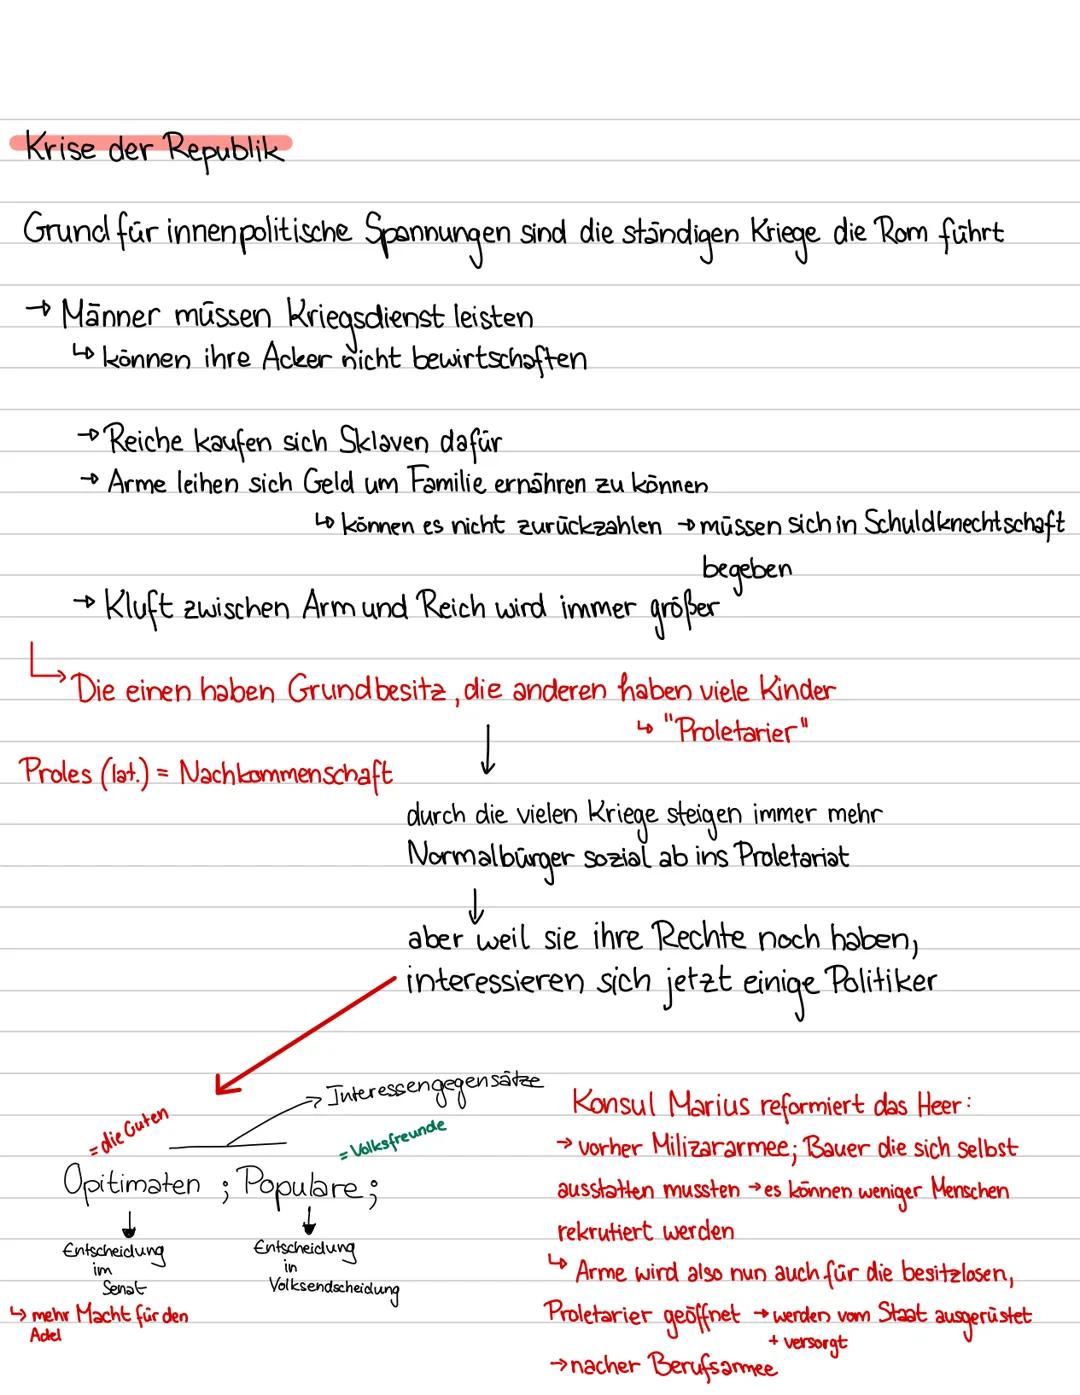 Krise der Republik
Grund für innenpolitische Spannungen sind die ständigen Kriege die Rom führt
→ Männer müssen Kriegsdienst leisten
↳ können ihre Äcker nicht bewirtschaften
→ Reiche kaufen sich Sklaven dafür
→ Arme leihen sich Geld um Familie ernähren zu können
↳ können es nicht zurückzahlen → müssen sich in Schuldknechtschaft
begeben
→ Kluft zwischen Arm und Reich wird immer größer
↳ Die einen haben Grundbesitz, die anderen haben viele Kinder
↳ "Proletarier"
Proles (lat.) = Nachkommenschaft
↓
durch die vielen Kriege steigen immer mehr
Normalbürger sozial ab ins Proletariat
↓
aber weil sie ihre Rechte noch haben,
interessieren sich jetzt einige Politiker
→ Interessengegensätze
= die Guten
= Volksfreunde
Opitimaten ; Populare ;
↓ ↓
Entscheidung
im
Senat
↳ mehr Macht für den
Adel
Entscheidung
in
Volksendscheidung
Konsul Marius reformiert das Heer:
→ vorher Milizararmee; Bauer die sich selbst
ausstatten mussten → es können weniger Menschen
rekrutiert werden
↳ Arme wird also nun auch für die besitzlosen,
Proletarier geöffnet → werden vom Staat ausgerüstet
+ versorgt
→ nacher Berufsarmee